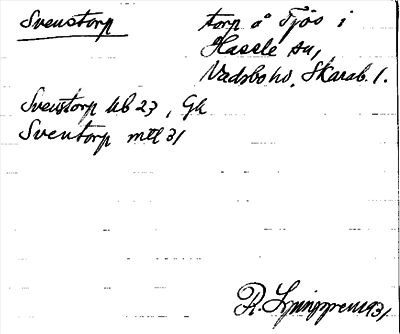 Svenstorp torp å Tjös i
Hassle sn,
Vadsbo hd, Skarab. l.
Svenstorp hb 23, Gk
Sventorp mtl 31
R. Ljunggren 1931